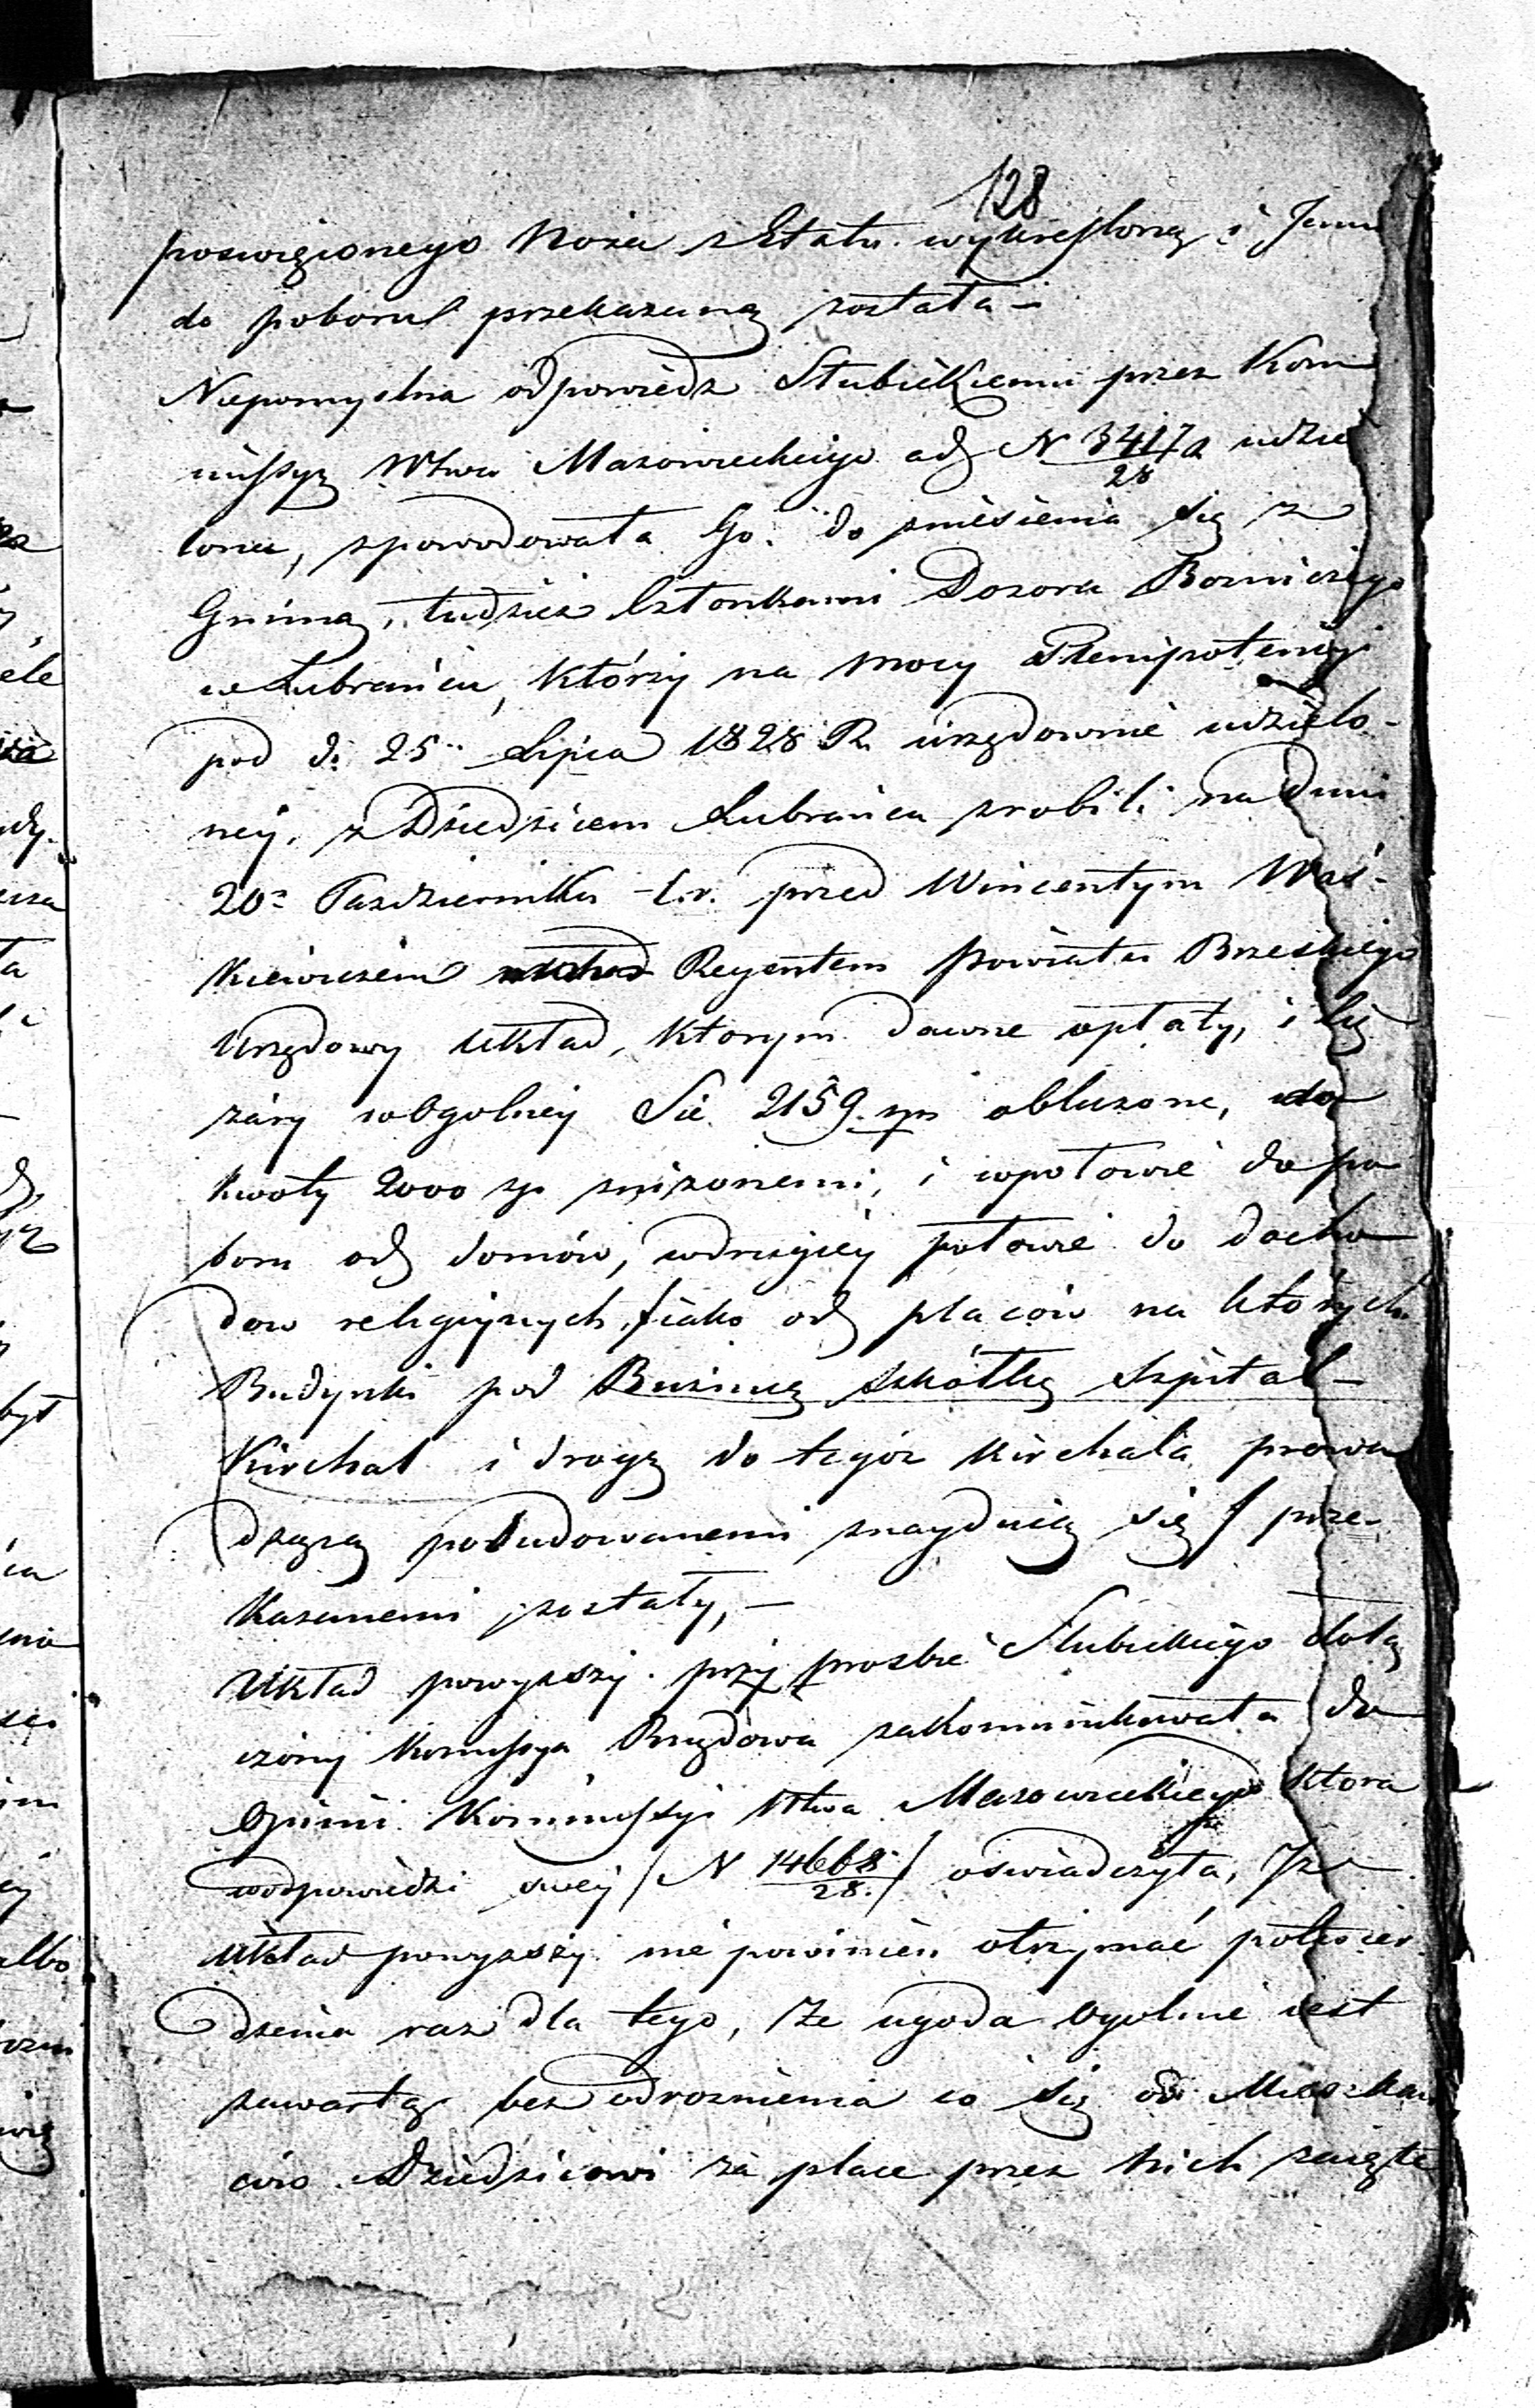 128
poswięcionego Noża z Etatu wykreśloną i Jemu
do poboru przekazaną została –
Niepomyslna odpowiedz Słubickiemu przez Kom
missyą Wtwa Mazowieckiego ad N 34172/28 udzie
lona, spowodowała Go do zniesienia się z
Gminą, tudzież Członkami Dozoru Bozniczego
w Lubrańcu, którzy na mocy Plenipotencyi
pod d. 25 Lipca 1828 R. urzędownie udzielo-
ney, z Dziedzicem Lubrańca zrobili na dniu
20 Pazdziernika t.r. przed Wincentym Waś-
kiewiczem Reyentem powiatu Brzeskiego
Urzędowy Układ, ktorym dawne opłaty, i Cię
żary wogolney Sie 2159 zp obliczone, do
kwoty 2000 zp zniżonemi, i wpołowie do po
boru od domów, wdrugiey połowie do docho
dow religiynych, /iako od placow na ktorych
Budynki pod Bużnicę Szkółkę Szpital –
Kirchał i drogę do tegóż Kirchała prowa
dzącą pobudowanemi znayduią się / prze-
kazanemi zostały, –
Układ powyzszy przy prosbie Słubickiego dołą
czony Kommissya Rządowa zakommunikowała do
Opinii Kommissyi Wtwa Mazowieckiego ktora
wodpowiedzi swey / N 14668/28. / oswiadczyła, Iż
Układ powyzszy nie powinien otrzymać potwier
dzenia raz dla tego, że ugoda ogolnie iest
zawartą bez odroznienia co się od Mieszkan
cow Dziedzicowi za place przez nich zaięte